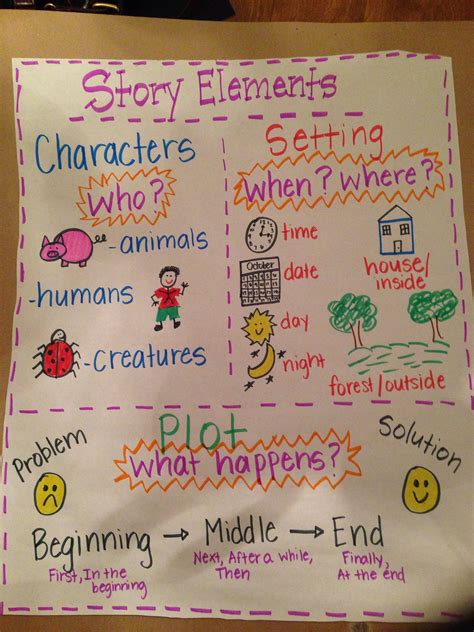 Story Elements
Characters
Who?
-animals
-humans
-creatures
Setting
when? where?
time
October
date
day
night
house/
inside
forest/outside
Plot
what happens?
Problem
Solution
Beginning → Middle → End
First, In the
beginning
Next, After a while,
Then
Finally,
At the end